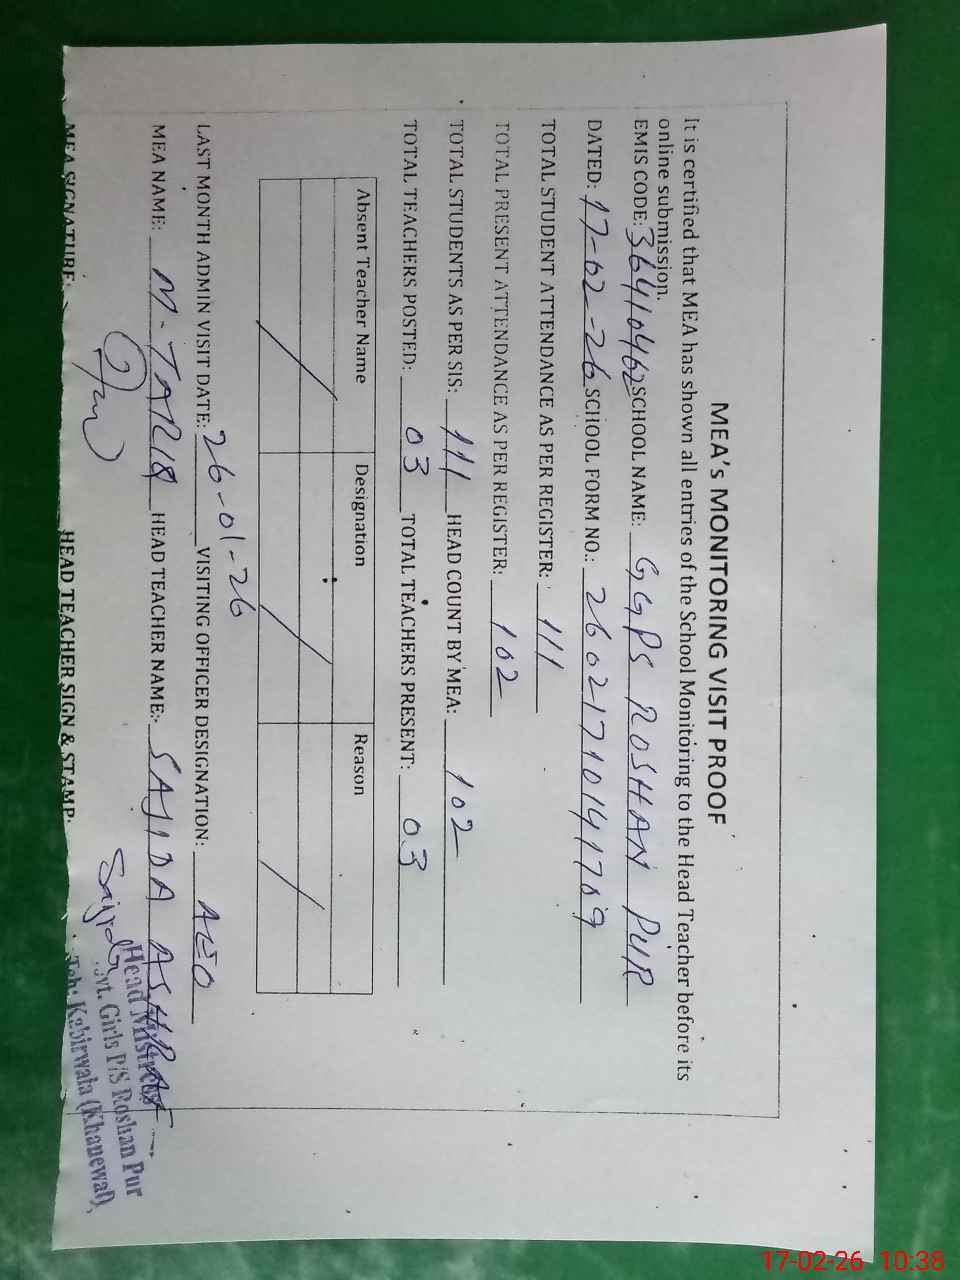 MEA's MONITORING VISIT PROOF
It is certified that MEA has shown all entries of the School Monitoring to the Head Teacher before its
online submission.
EMIS CODE: 36410462 SCHOOL NAME: GGPS ROSHAN PUR
DATED: 17-02-26 SCHOOL FORM NO.: 26021710141709
TOTAL STUDENT ATTENDANCE AS PER REGISTER: 111
TOTAL PRESENT ATTENDANCE AS PER REGISTER: 102
TOTAL STUDENTS AS PER SIS: 111 HEAD COUNT BY MEA: 102
TOTAL TEACHERS POSTED: 03 TOTAL TEACHERS PRESENT: 03
Absent Teacher Name Designation Reason
LAST MONTH ADMIN VISIT DATE: 26-01-26 VISITING OFFICER DESIGNATION: AEO
MEA NAME: M. TARIQ HEAD TEACHER NAME: SAJIDA ASHRAF
MEA SIGNATURE: HEAD TEACHER SIGN & STAMP:
Sajida
Head Mistress
Govt. Girls P/S Roshan Pur
Teh: Kabirwala (Khanewal)
17-02-26 10:38